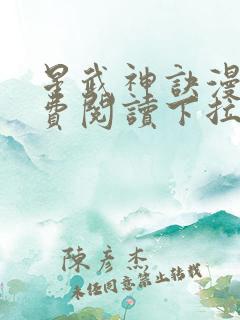 星武神訣漫
費閱讀下拉
陳彥杰
未經同意禁止轉載